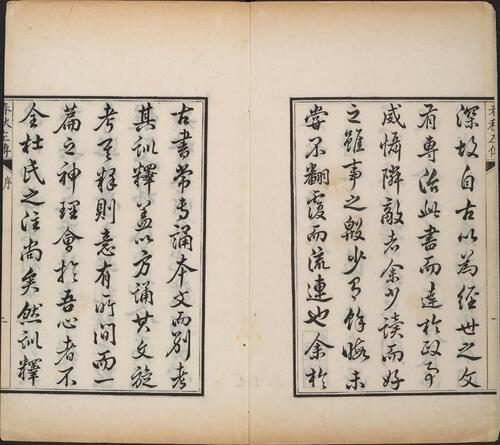 深故自古以為經世之文
有專治此書而達於政事
威懾隣敵者余少讀而好
之雖事之殷少有餘晦未
嘗不翻覆而流連也余於
古書常专誦本文而別考
其訓釋蓋以方誦其文旋
考其釋則意有所間而一
篇之神理會於吾心者不
全杜氏之注尚矣然訓釋
春秋左傳
序